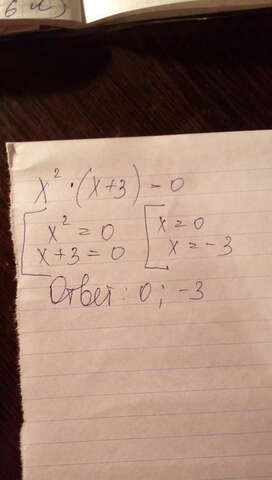 x² · (x+3) = 0
[ x² = 0 [ x = 0
x+3 = 0 x = -3
Ответ: 0; -3